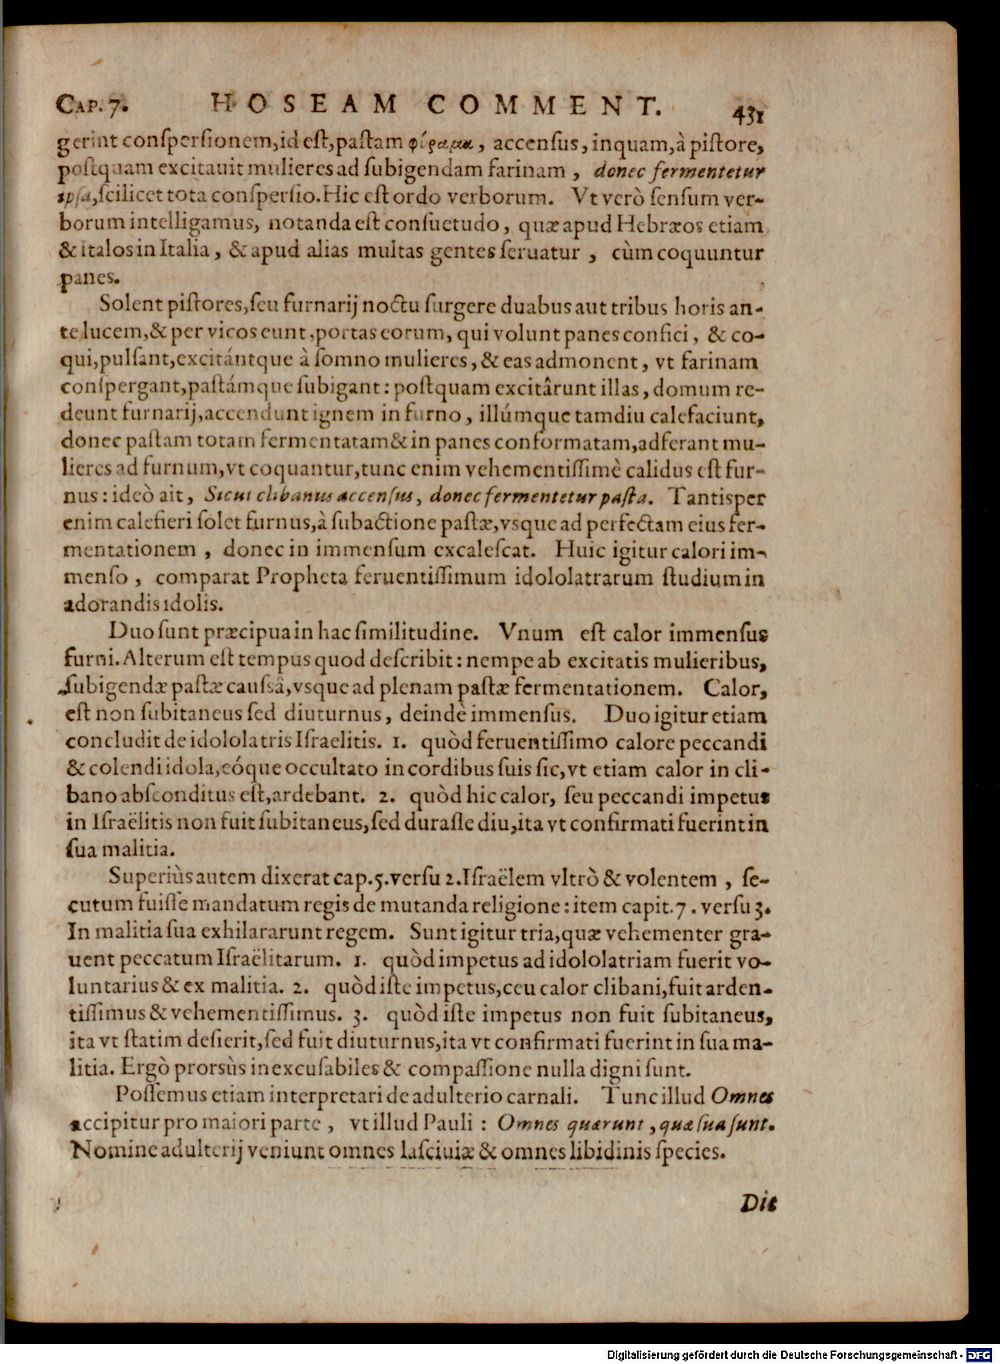 CAP. 7. HOSEAM COMMENT. 431
gerint conſperſionem, id eſt, paſtam φύραμα, accenſus, inquam, à piſtore,
poſtquam excitauit mulieres ad ſubigendam farinam, donec fermentetur
ipſa, ſcilicet tota conſperſio. Hic eſt ordo verborum. Vt verò ſenſum ver-
borum intelligamus, notanda eſt conſuetudo, quæ apud Hebræos etiam
& italos in Italia, & apud alias multas gentes ſeruatur, cùm coquuntur
panes.
Solent piſtores, ſeu furnarij noctu ſurgere duabus aut tribus horis an-
te lucem, & per vicos eunt, portas eorum, qui volunt panes confici, & co-
qui, pulſant, excitántque à ſomno mulieres, & eas admonent, vt farinam
conſpergant, paſtámque ſubigant: poſtquam excitârunt illas, domum re-
deunt furnarij, accendunt ignem in furno, illúmque tamdiu calefaciunt,
donec paſtam totam fermentatam & in panes conformatam, adferant mu-
lieres ad furnum, vt coquantur, tunc enim vehementiſſimè calidus eſt fur-
nus: ideò ait, Sicut clibanus accenſus, donec fermentetur paſta. Tantisper
enim calefieri ſolet furnus, à ſubactione paſtæ, vsque ad perfectam eius fer-
mentationem, donec in immenſum excaleſcat. Huic igitur calori im-
menſo, comparat Propheta feruentiſſimum idololatrarum ſtudium in
adorandis idolis.
Duo ſunt præcipua in hac ſimilitudine. Vnum eſt calor immenſus
furni. Alterum eſt tempus quod deſcribit: nempe ab excitatis mulieribus,
ſubigendæ paſtæ cauſsâ, vsque ad plenam paſtæ fermentationem. Calor,
eſt non ſubitaneus ſed diuturnus, deindè immenſus. Duo igitur etiam
concludit de idololatris Iſraelitis. 1. quòd feruentiſſimo calore peccandi
& colendi idola, eóque occultato in cordibus ſuis ſic, vt etiam calor in cli-
bano abſconditus eſt, ardebant. 2. quòd hic calor, ſeu peccandi impetus
in Iſraëlitis non fuit ſubitaneus, ſed duraſſe diu, ita vt confirmati fuerint in
ſua malitia.
Superiùs autem dixerat cap. 5. verſu 2. Iſraëlem vltrò & volentem, ſe-
cutum fuiſſe mandatum regis de mutanda religione: item capit. 7. verſu 3.
In malitia ſua exhilararunt regem. Sunt igitur tria, quæ vehementer gra-
uent peccatum Iſraëlitarum. 1. quòd impetus ad idololatriam fuerit vo-
luntarius & ex malitia. 2. quòd iſte impetus, ceu calor clibani, fuit arden-
tiſſimus & vehementiſſimus. 3. quòd iſte impetus non fuit ſubitaneus,
ita vt ſtatim deſierit, ſed fuit diuturnus, ita vt confirmati fuerint in ſua ma-
litia. Ergò prorsùs inexcuſabiles & compaſſione nulla digni ſunt.
Poſſemus etiam interpretari de adulterio carnali. Tunc illud Omnes
accipitur pro maiori parte, vt illud Pauli: Omnes quærunt, quæ ſua ſunt.
Nomine adulterij veniunt omnes laſciuiæ & omnes libidinis ſpecies.
Dic
Digitalisierung gefördert durch die Deutsche Forschungsgemeinschaft - DFG